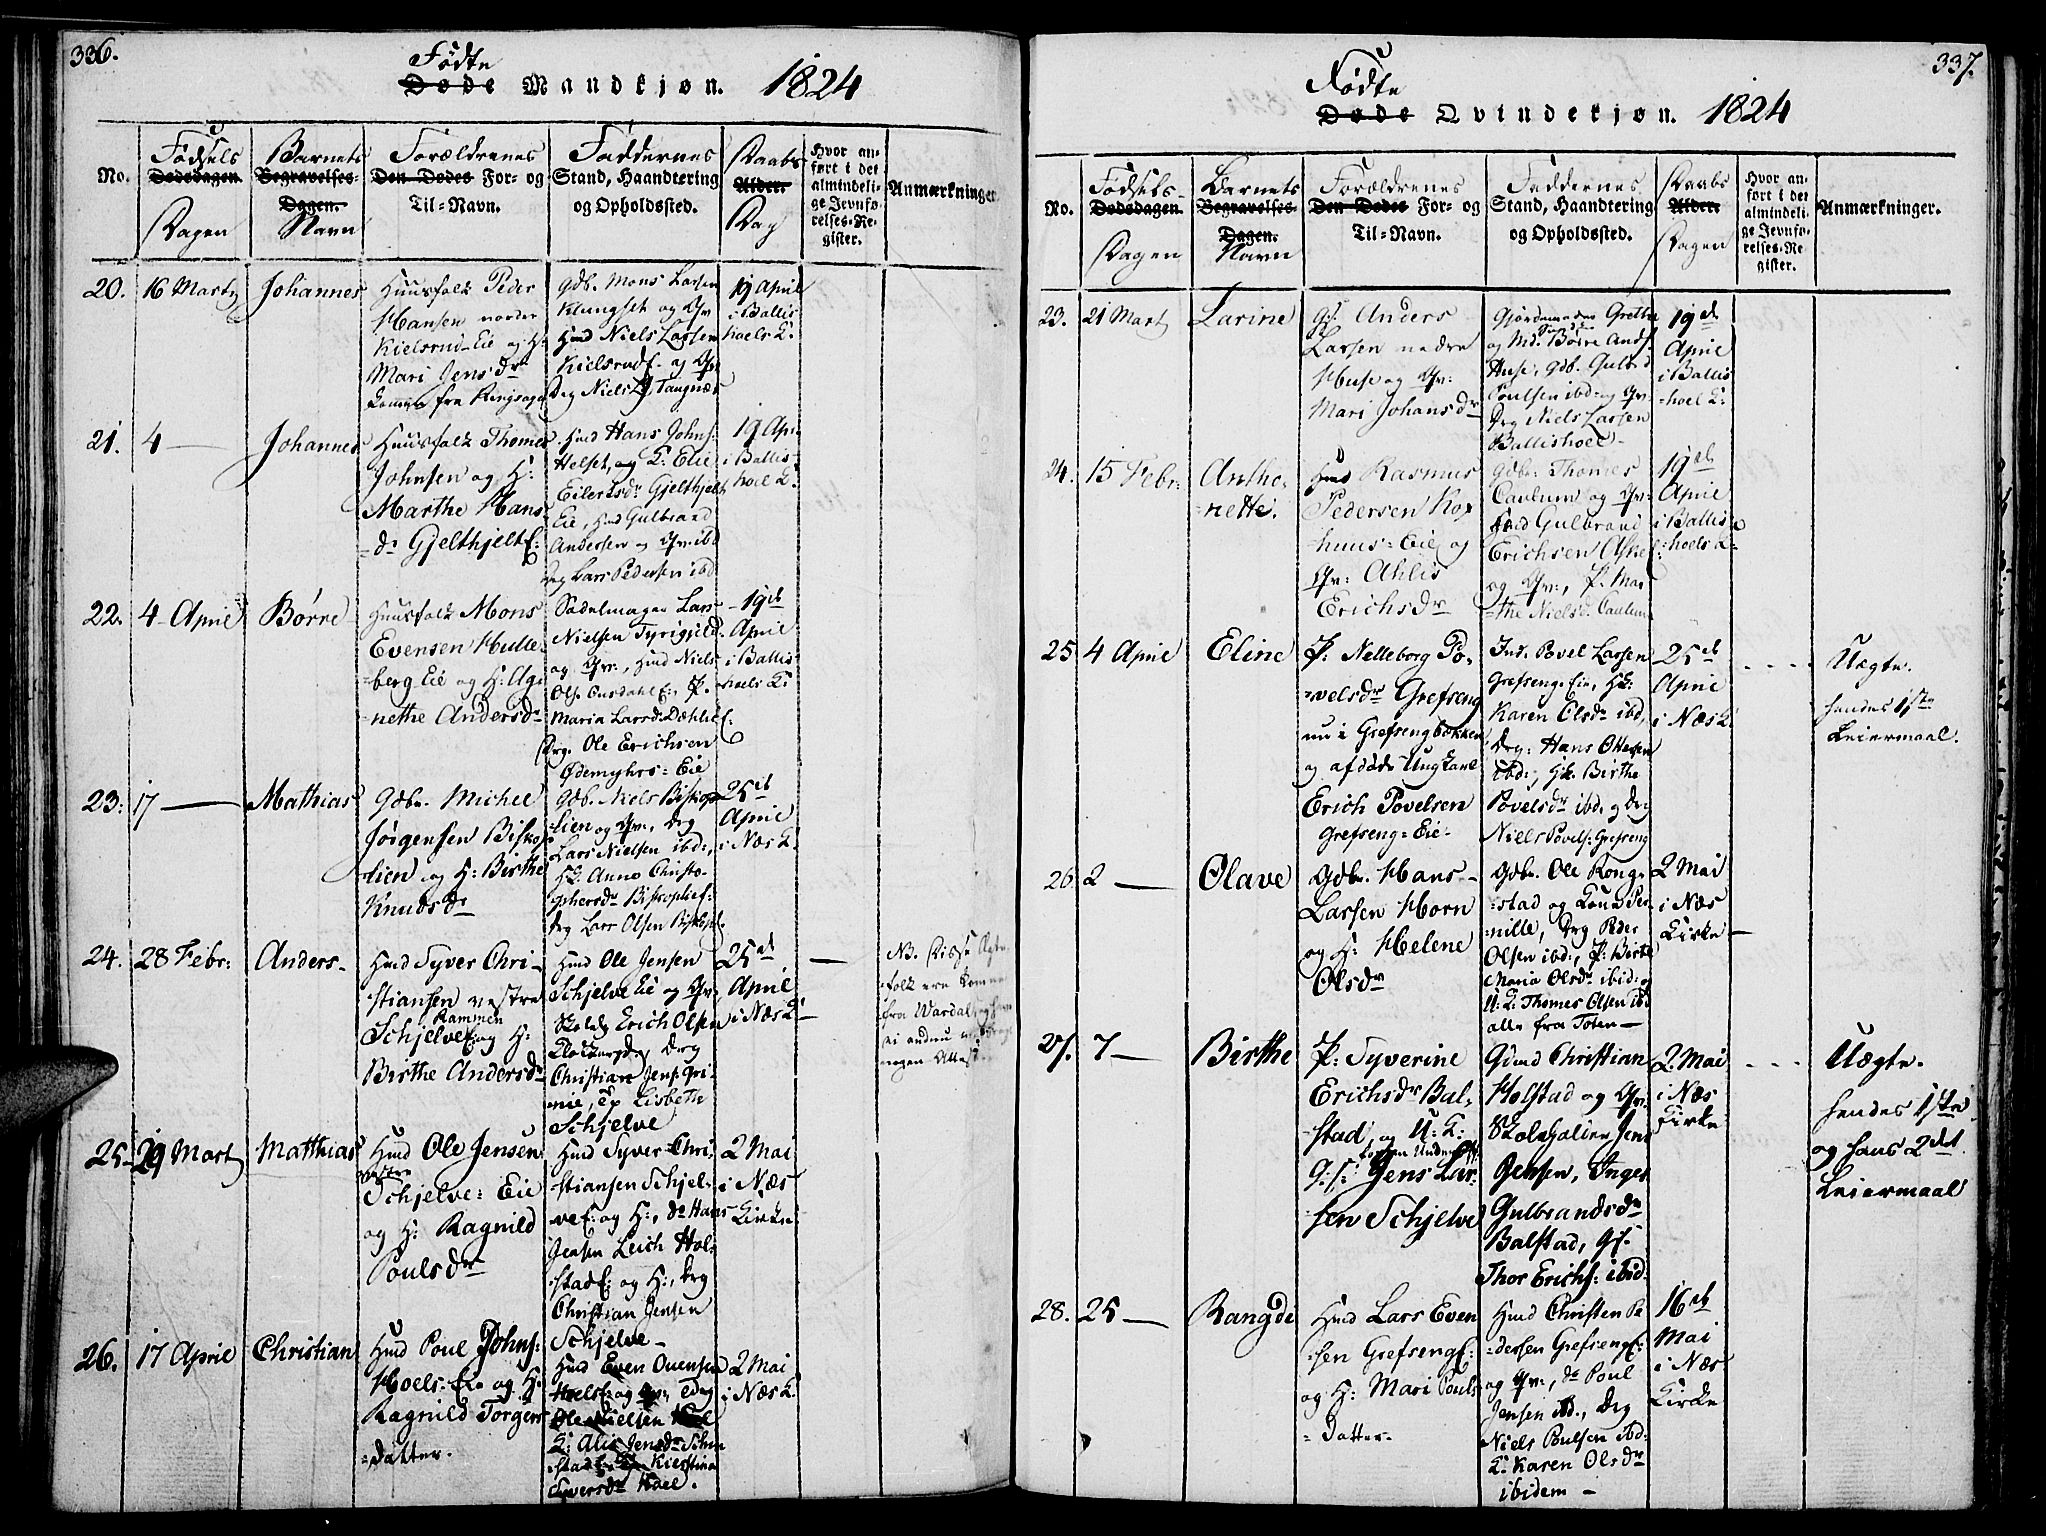 336.
Fødte
Døde Mandkjøn. 1824
No.
Fødsels
Dødsdagen
Dagen
Barnets
Begravelses-
Dagen.
Navn
Forældrenes
Den Dødes For- og
Til-Navn.
Faddernes
Stand, Haandtering
og Opholdssted.
Daabs
Alder.
Dag
Hvor an-
ført i det
almindeli-
ge Jevnfø-
relses-Re-
gister.
Anmærkninger
20.
16 Marty
Johannes
Huusfolk Peder
Hansen nordre
Kielsrud Eie og H:
Mari Jensdr
komne fra Ringsager
Gdb. Mons Larsen
Klungset og Qv
Hmd Niels Larsen
KielsrudE. og Qv:
Drg Niels Taugnæs
19 April
i Ballis
hoels K.
21.
4 —
Johannes
Huusfolk Thomes
Johnsen og H:
Marthe Hans
=dr GjelthjeltE:
Hmd Hans Johns:
Helset, og K: Elie
Eilertsdr Gjelthjelt
Eie, Hmd Gulbrand
Andersen og Qv: ibd
Drg Lars Pedersen ibd
19 Apr:
i Ballis-
hoel K.
22.
4 April
Børre
Huusfolk Mons
Evensen Hulle-
=berg Eie og H: Ag-
nethe Andersdr
Sadelmager Lars
Nielsen Tyrigjild
og Qv:, Hmd Niels
Ols. AasdahlE:, P.
Maria Larsdr DæhlieE:
Drg. Ole Erichsen
Ødemyhrs-Eie
19de
April
i Ballis
hoels K:
23:
17 —
Mathias
Gdbr. Michel
Jørgensen Biskop
lien og H: Birthe
Knudsdr
Gdb. Niels Biskop
lien og Qv:, Drg
Lars Nielsen ibd:,
HK: Anne Christo-
phersdr Biskoplief:
Drg Lars Olsen Biskopl.
25de
April
i Næs K:
24.
28 Febr:
Anders
Hmd Syver Chri-
stiansen vestre
Rammen
SchjelveE og H:
Birthe Andersdr
Hmd Ole Jensen
Schjelve Eie og Qv:,
Skolelr Erich Olsen
Klokkergr, Drg
Christian Jens: Gri-
mie, Ep Lisbeth
Schjelve
25de
April
i Næs K:
—
NB. Disse Ægte
folk ere komne
fra Wardal, og have
ei endnu
nogen Attest
25
29 Mart
Matthias
Hmd Ole Jensen
vestre
Schjelve: Eie
og H: Ragnild
Poulsdr
Hmd Syver Chri-
stiansen Schjel-
veE: og H:, do Hans
Jensen Leich Hol-
stadE: og H:, Drg
Christian Jensen
Schjelve
2 Mai
i Næs
Kirke
26.
17 April
Christian
Hmd Poul Johns:
Hoels: Eie og H:
Ragnild Torgers
=datter.
Hmd Even Ouensen
HoelsE: og Qv: Drg
Ole Nielsen Hoel
K: Alis Jensdr Schu
stadE: Kierstina
Siversdr Hoel.
2 Mai
i Næs K:
337.
Fødte
Døde Qvindekjøn. 1824
No.
Fødsels-
Dødsdagen.
Dagen
Barnets
Begravelses-
Dagen.
Navn
Forældrenes
Den Dødes For- og
Til-Navn.
Faddernes
Stand, Haandtering
og Opholdssted.
Daabs
Alder.
Dagen
Hvor an-
ført i det
almindeli-
ge Jevnfø-
relses-Re-
gister.
Anmærkninger.
23.
21 Mart
Larine
Gf. Anders
Larsen nedre
Huse og Qv:
Mari Johansdr
Gjordemoder Grethe
og Md. Børre Ands
Huse, Gdb. Gulbrd
Poulsen ibd og Qv:
Drg Niels Larsen
Ballishoel
19de
April
i Ballis
=hoel K:
24.
15 Febr:
Antho-
=nette.
Hmd Rasmus
Pedersen Kop
huus=Eie og
Qv: Ahlis
Erichsdr
Gdbr. Thomes
Caulum og Qv:
Hmd Gulbrand
Erichsen AskeE:
og Qv:, P. Mar
=the Nielsd. Caulum
19de
April
i Ballis-
=hoels K:
25
4 April
Eline
P: Nelleborg Po-
=velsdr Grefseng
nu i Grefsengbakken
og afdøde Ungkarl
Erich Povelsen
Grefseng=Eie
Ind. Povel Larsen
Grefseng-Eie, HK:
Karen Olsdr ibd,
Drg: Hans Ottesen
ibd:, GK. Birthe
Povelsdr ibd: og Drg
Niels Povels: Grefseng
25de
April
i Næs K
Uægte.
hendes 1ste
Leiermaal.
26.
2 —
Olave
Gdbr. Hans
Larsen Horn
og H: Helene
Olsdr
Gdbr. Ole Rong-
=stad og Kone Per-
nille, Drg Peder
Olsen ibd:, P: Birte
Maria Olsdr ibid: og
U:K: Thomes Olsen ib:
alle fra Toten
2 Mai
i Næs
Kirke
27.
7 —
Birthe
P: Syverine
Erichsdr Bal-
stad, og U:K:
G:S: Jens Lar-
sen Schjelve
Gdmd Christian
Holstad og Qv:
Skoleholder Jens
Jensen, Inger
Gulbrandsdr
Balstad, Gf.
Thor Erichs: ibid:
2 Mai
i Næs
Kirke
Uægte.
hendes 1ste
og hans 2det
Leiermaal
28.
25 —
Rangde
Hmd Lars Even
sen GrefsengE:
og H: Mari Pouls
=datter.
Hmd Christen Pe
=dersen GrefsengE:
og Qv:, do Poul
Jensen ibd., Drg
Niels Poulsen ibd:
K: Karen Olsdr
ibidem
16de
Mai
i Næs
Kirke